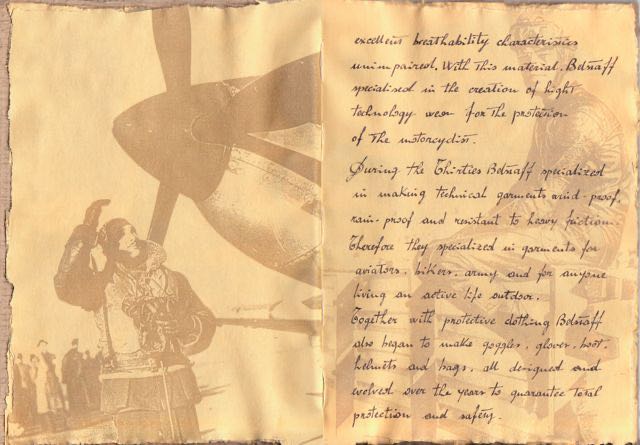 excellent breathability characteristics
unimpaired. With this material, Belstaff
specialised in the creation of hight
technology wear for the protection
of the motorcyclist.
During the Thirties Belstaff specialized
in making technical garments wind-proof,
rain-proof and resistant to heavy friction.
Therefore they specialized in garments for
aviators, bikers, army and for anyone
living an active life outdoor.
Together with protective clothing Belstaff
also began to make goggles, gloves, boot,
helmets and bags, all designed and
evolved over the years to guarantee total
protection and safety.